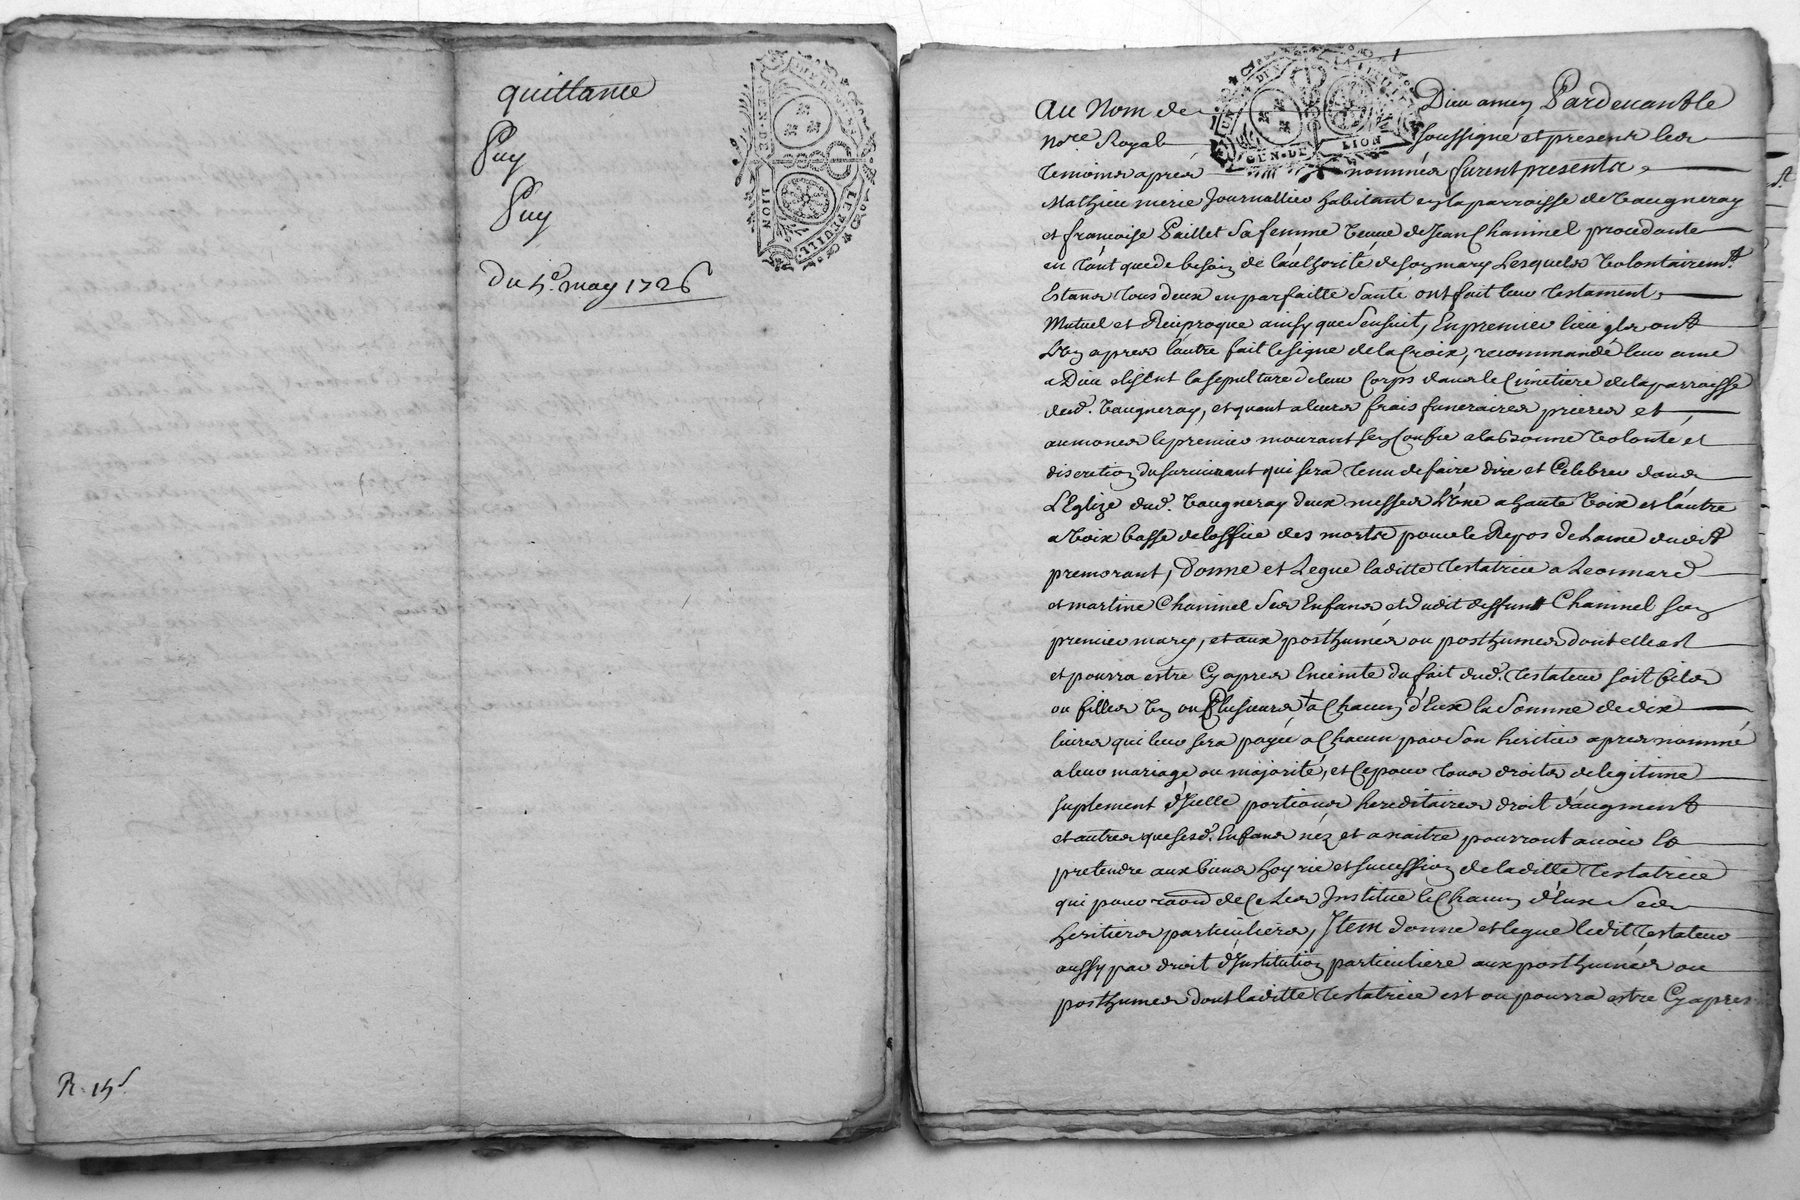 quittance
Puy
Puy
Du 5e. may 1726
GEN. DE
LION
R. 15s
Au Nom de Dieu amen Pardevant le
Nore Royal soussigné et presens les
temoins apres nommés furent presents
Mathieu merie Journallier habitant en la parroisse de Vaugneray
et francoise Paillet sa femme veuve de Jean Chaninel procedante
en tant que de besoin de l'authorité de son mary Lesquels volontairemt.
Estans tous deux en parfaitte santé ont fait leur testament
Mutuel et Reciproque ainsy que s'ensuit, En premier lieu ils ont
L'un apres l'autre fait le signe de la Croix, recommandé leur ame
a Dieu elisent la sepulture de leur Corps dans le Cimetiere de la parroisse
dud. Vaugneray, et quant a leurs frais funeraires prieres et
aumones le premier mourant s'en Confie a la bonne volonté et
discretion du survivant qui sera tenu de faire dire et Celebrer dans
L'Eglize dud. Vaugneray deux messes L'vne a haute voix et l'autre
a voix basse de l'office des morts pour le Repos de l'ame dudit
premorant, Donne et Legue laditte testatrice a Leonnard
et martine Chaninel ses Enfans et dudit deffunt Chaninel son
premier mary, et aux posthumes ou posthumes dont elle est
et pourra estre Cy apres Enceinte du fait dud. testateur soit fils
ou filles un ou plusieurs a Chacun d'Eux la somme de dix
livres qui leur sera payée a Chacun par son heritier apres nommé
a leur mariage ou majorité, et Ce pour tous droits de legitime
suplement d'Icelle portions hereditaires droit d'augment
et autres que sesd. Enfans néz et a naitre pourront avoir et
pretendre aux biens hoyrie et succession de laditte testatrice
qui pour raon de Ce Les Institue et Chacun d'Eux ses
heritiers particuliers, Item donne et legue ledit testateur
aussy par droit d'Institution particuliere aux posthumes ou
posthumes dont laditte testatrice est ou pourra estre Cy apres